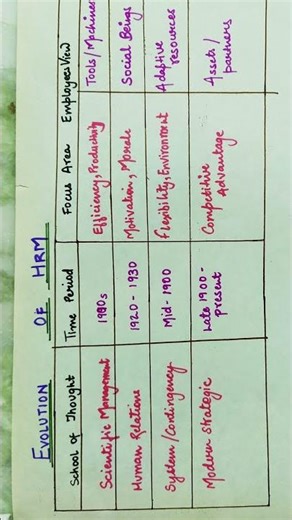 EVOLUTION OF HRM
School of Thought Time Period Focus Area Employees View
Scientific Management 1900s Efficiency, Productivity Tools/Machines
Human Relations 1920 - 1930 Motivation, Morale Social Beings
System/Contingency Mid - 1900 Flexibility, Environment Adaptive
resources
Modern Strategic Late 1900 -
present Competitive
Advantage Assets/
partners